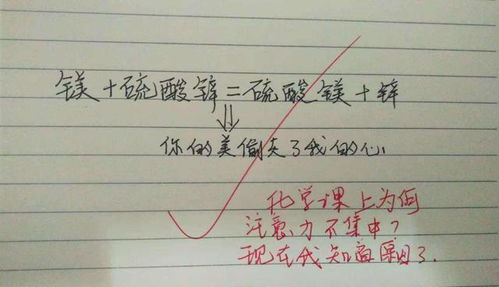 镁+硫酸锌=硫酸镁+锌
你的美偷走了我的心
化学课上为何
注意力不集中?
现在我知道原因了.